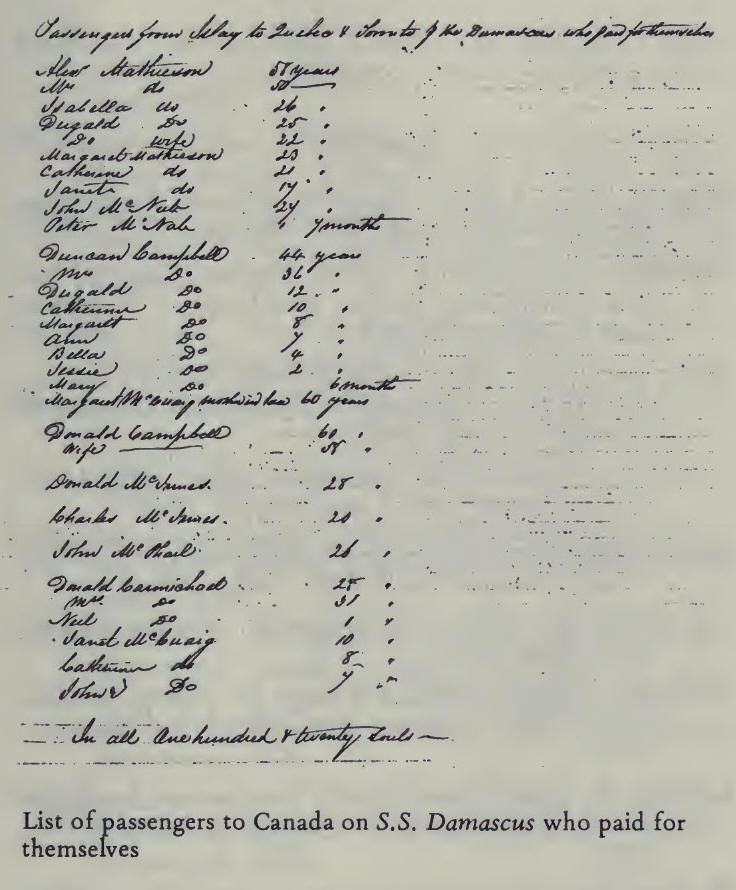 Passengers from Islay to Quebec & Toronto p the Damascus who paid for themselves
Alexr Mathieson 58 years
Mrs do 50
Isabella do 26 "
Dugald Do 25 "
Do wife 22 "
Margaret Mathieson 23 "
Catherine do 21 "
Janet do 17 "
John McNab 27 "
Peter McNab " 7 months
Duncan Campbell 44 years
Mrs Do 36 "
Dugald Do 12 "
Catherine Do 10 "
Margaret Do 8 "
Ann Do 7 "
Bella Do 4 "
Jessie Do 2 "
Mary Do 6 months
Margaret McCuaig mother in law 60 years
Donald Campbell 60 "
Wife 58 "
Donald McInnes. 28 "
Charles McInnes. 20 "
John McPhail 26 "
Donald Carmichael 28 "
Mrs. Do 31 "
Neil Do 1 "
Janet McCuaig 10 "
Catherine do 8 "
John Do 7 "
In all One hundred & twenty Souls —
List of passengers to Canada on S.S. Damascus who paid for
themselves